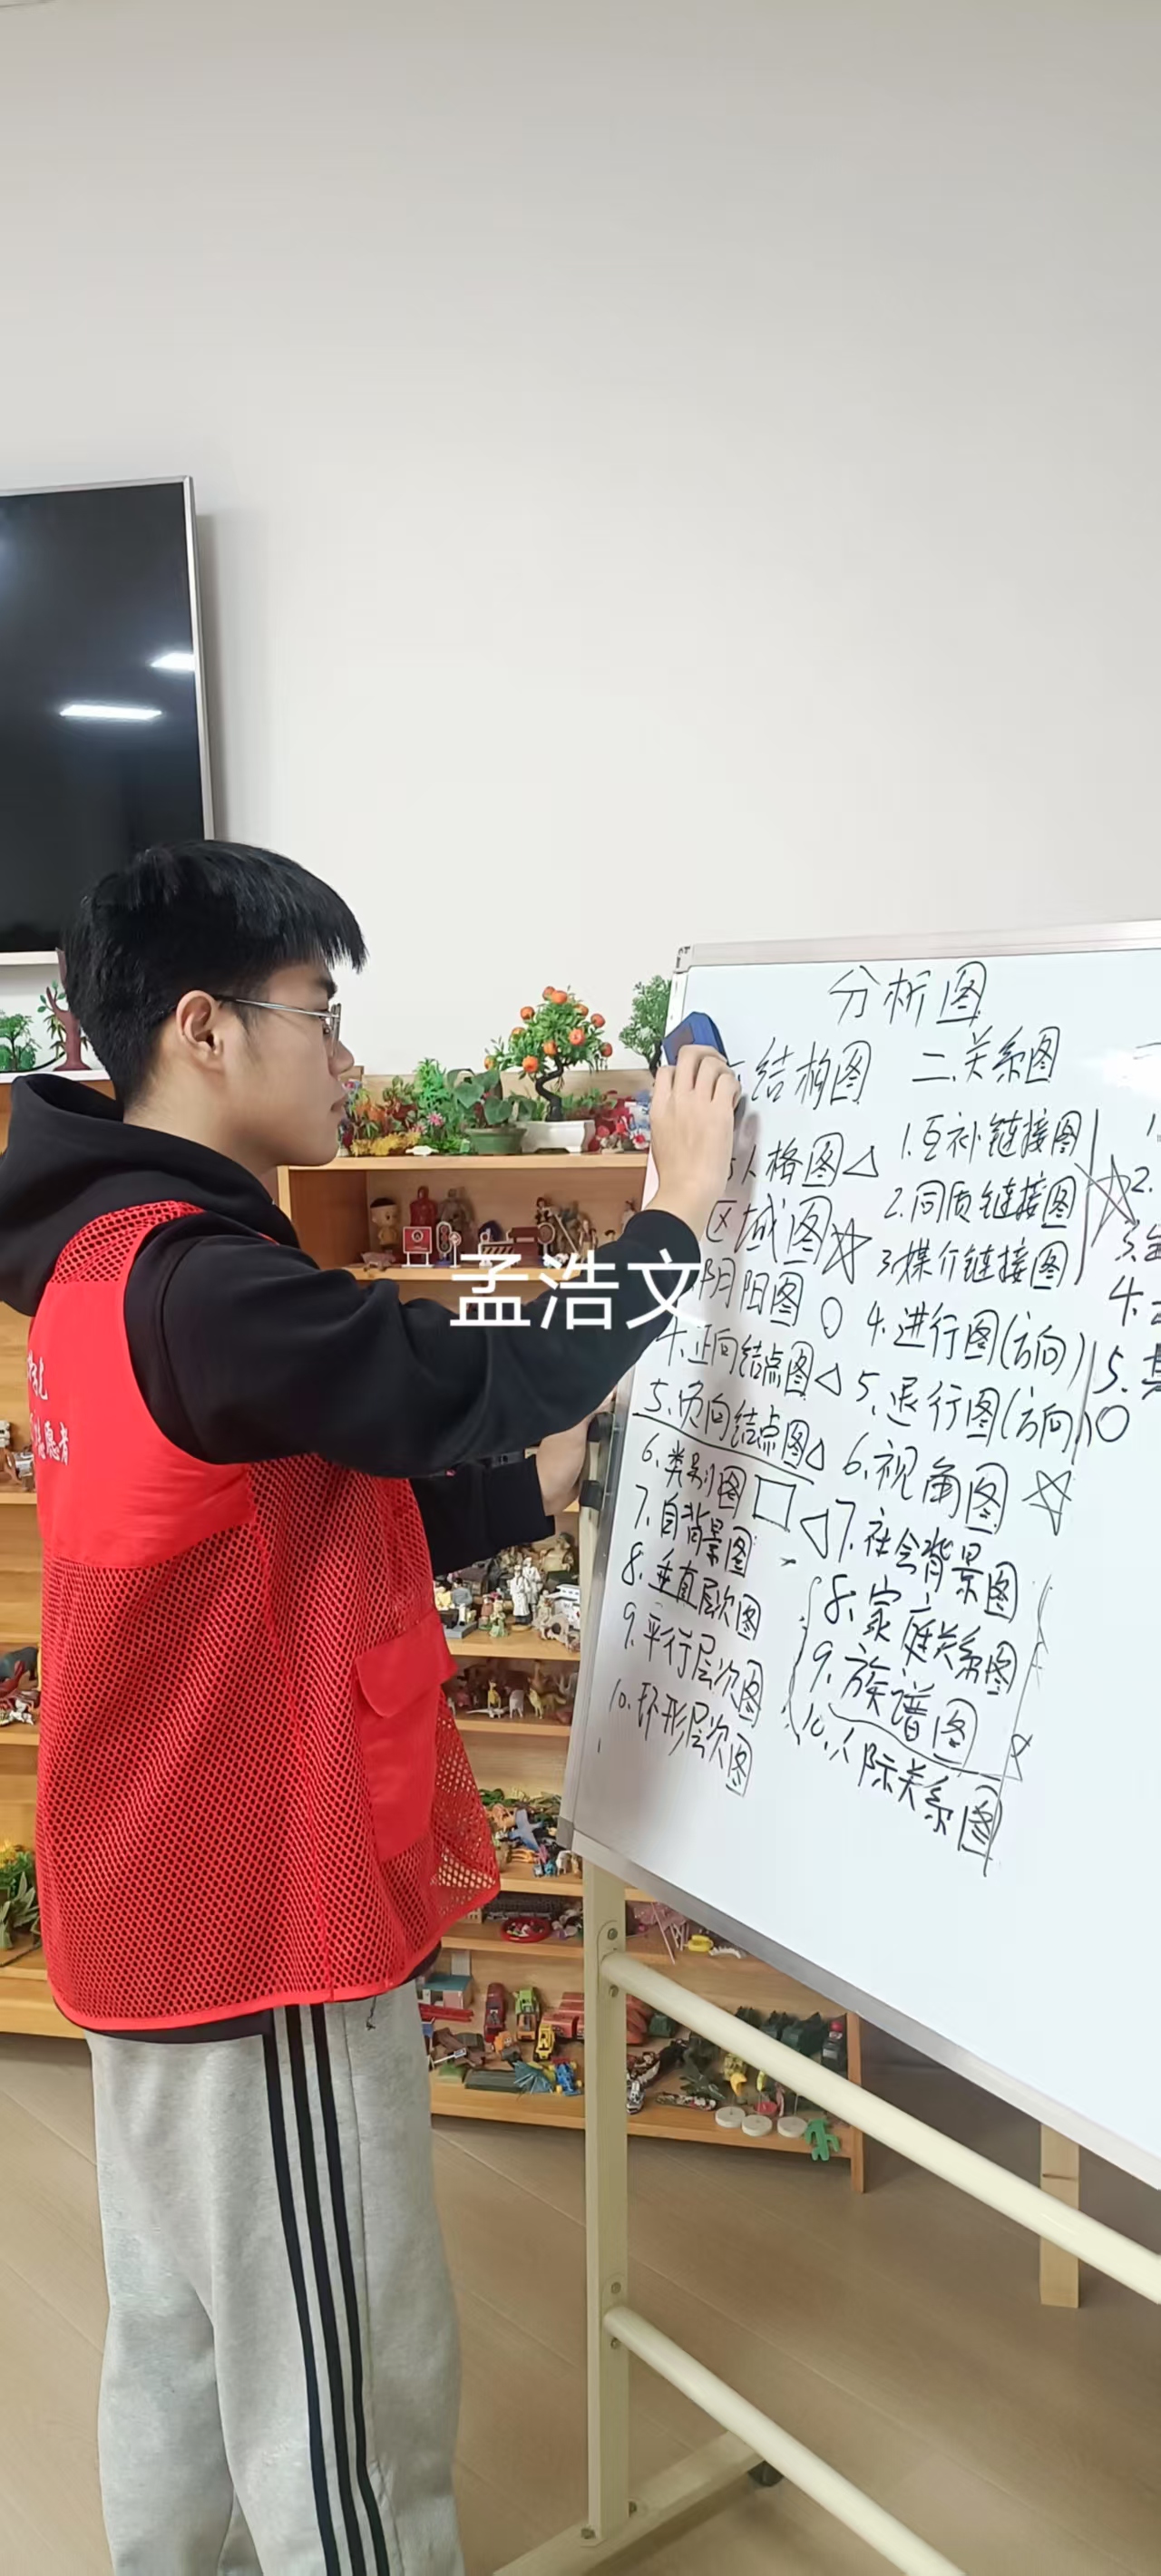 分析图
结构图
人格图
区域图
阴阳图
4.正向结点图
5.负向结点图
6.类别图
7.自背景图
8.垂直层次图
9.平行层次图
10.环形层次图
二.关系图
1.互补链接图
2.同质链接图
3.媒介链接图
4.进行图(方向)
5.退行图(方向)
6.视角图
7.社会背景图
8.家庭关系图
9.族谱图
10.人际关系图
1.
2.
3.
4.
5.
孟浩文
愿者